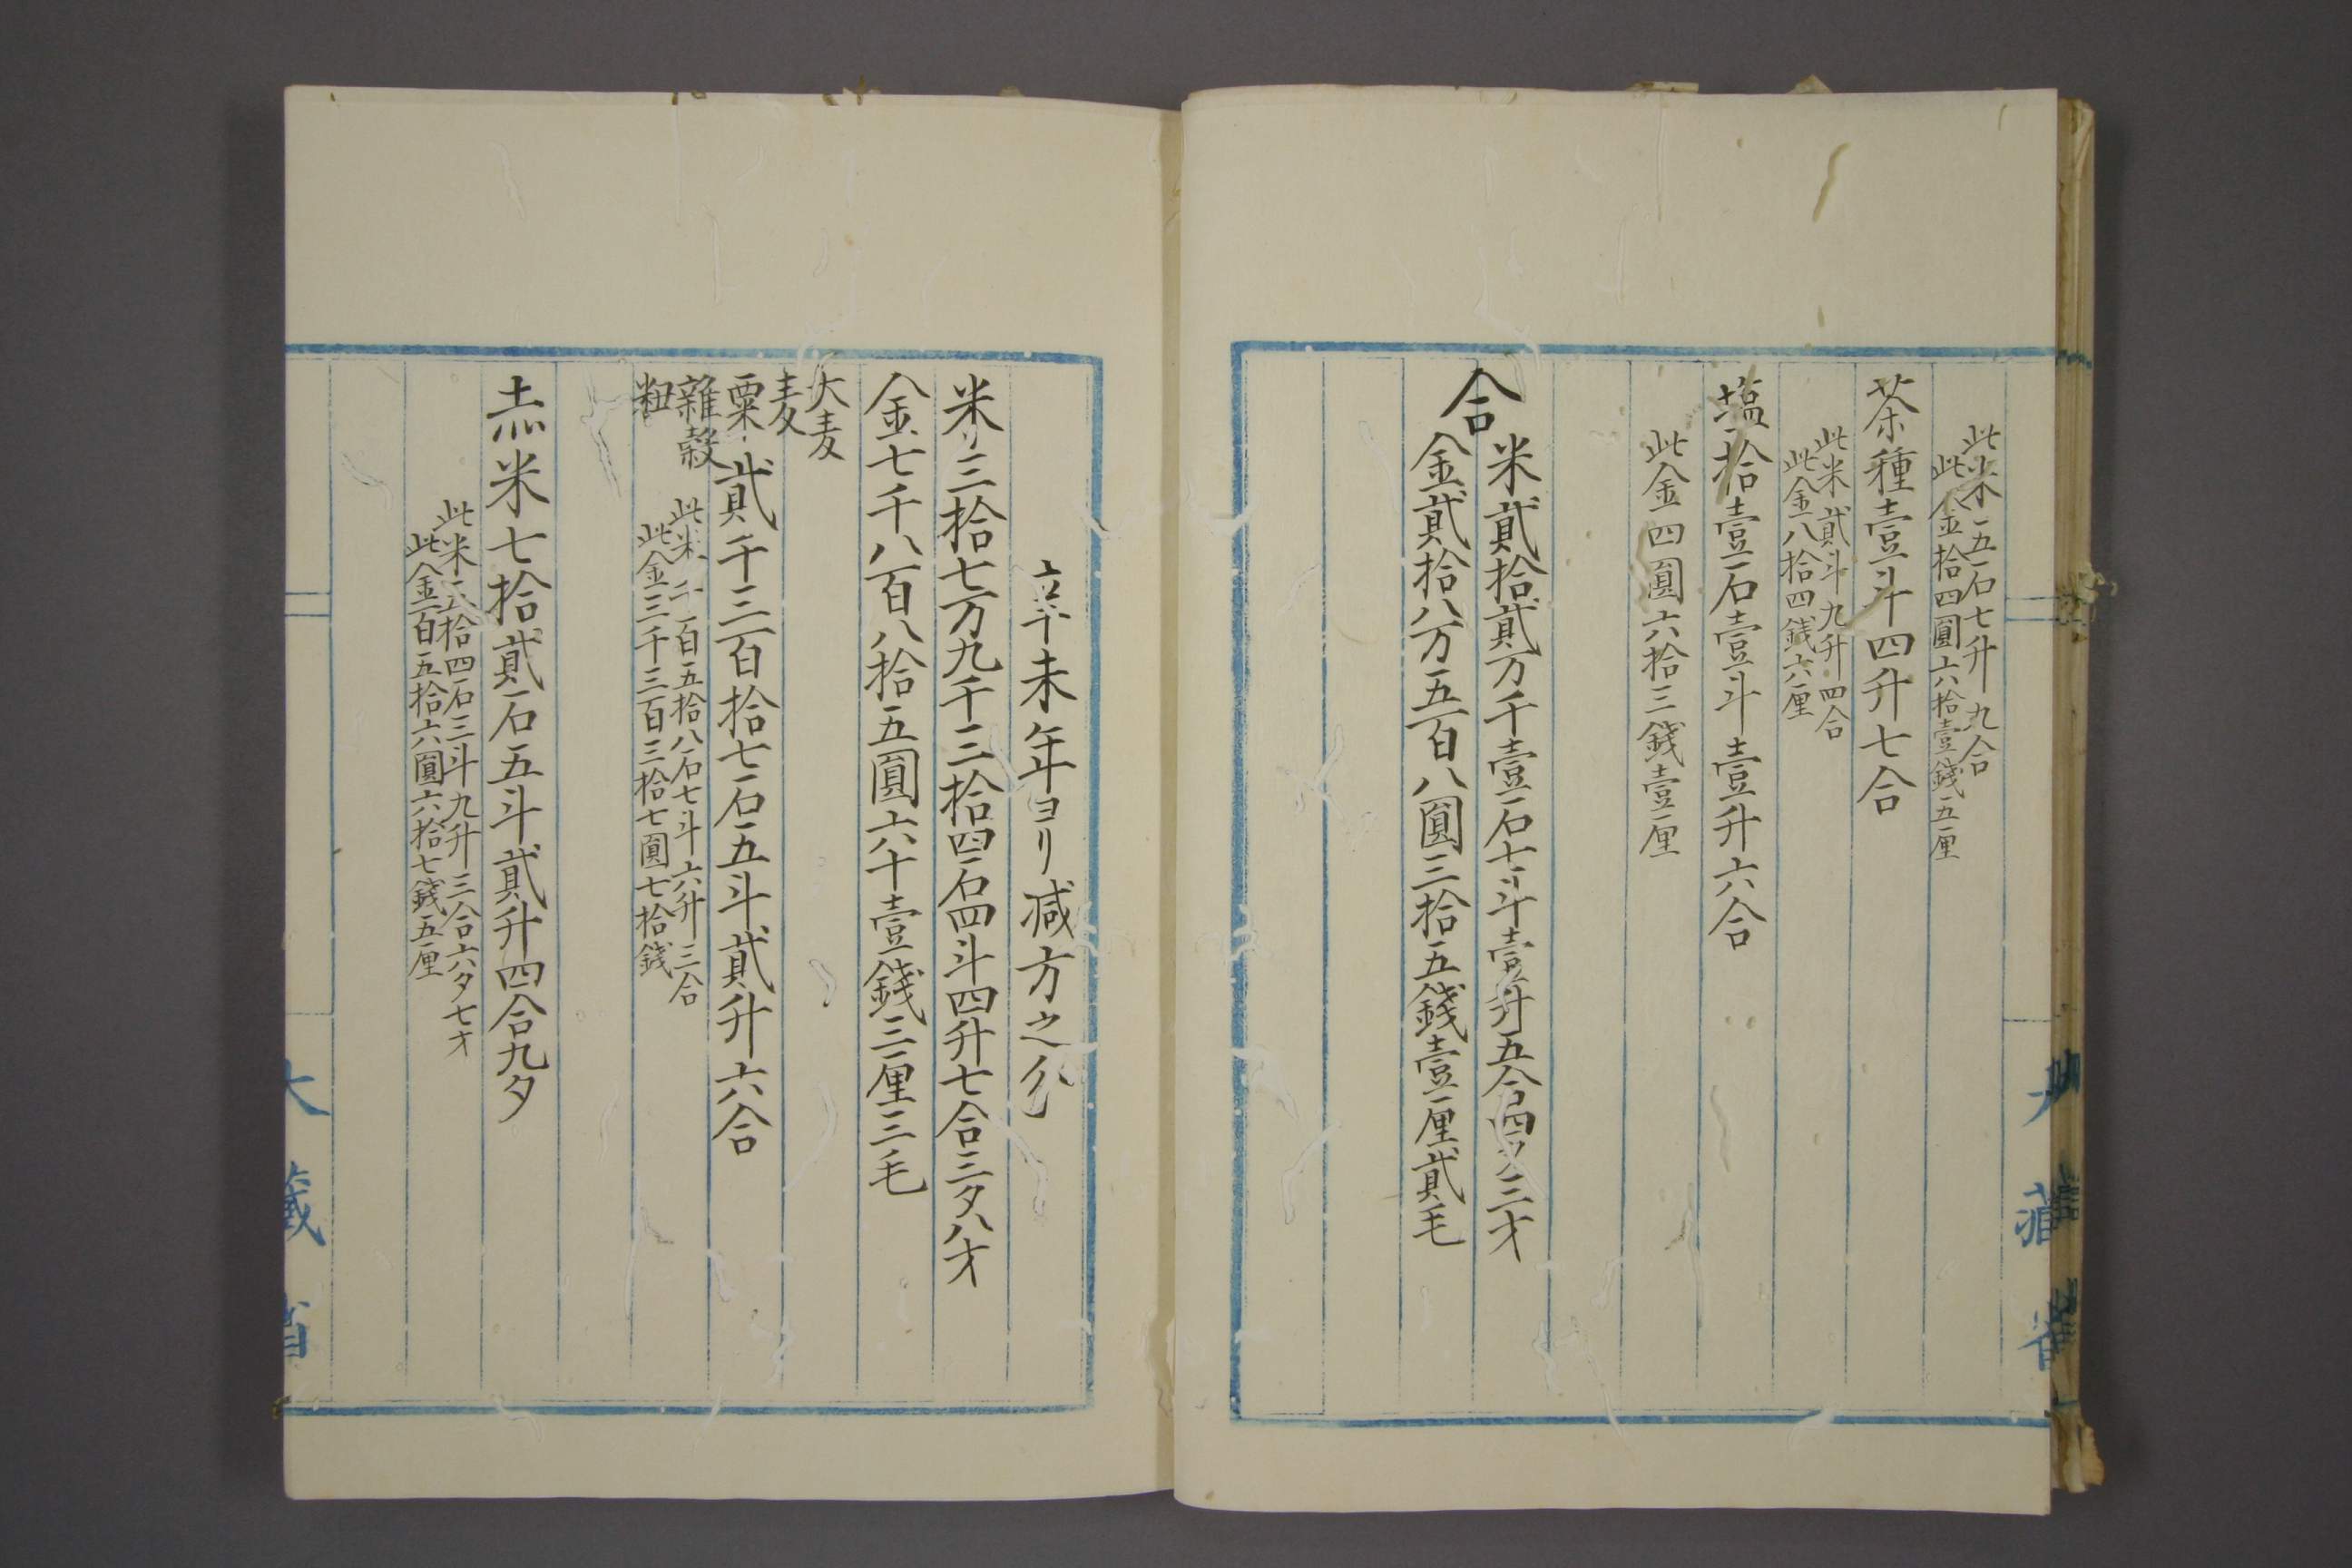 此米五石七升九合
此金拾四圓六拾壹錢五厘
茶種壹斗四升七合
此米貳斗九升四合
此金八拾四錢六厘
塩拾壹石壹斗壹升六合
此金四圓六拾三錢壹厘
合
米貳拾貳万千壹石七斗壹升五合四夕三才
金貳拾八万五百八圓三拾五錢壹厘貳毛
辛未年ヨリ減方之分
米三拾七万九千三拾四石四斗四升七合三夕八才
金七千八百八拾五圓六十壹錢三厘三毛
大麦
麦
粟
雜穀
粈
貳千三百拾七石五斗貳升六合
此米千百五拾八石七斗六升三合
此金三千三百三拾七圓七拾錢
赤米七拾貳石五斗貳升四合九夕
此米五拾四石三斗九升三合六夕七才
此金百五拾六圓六拾七錢五厘
大藏省